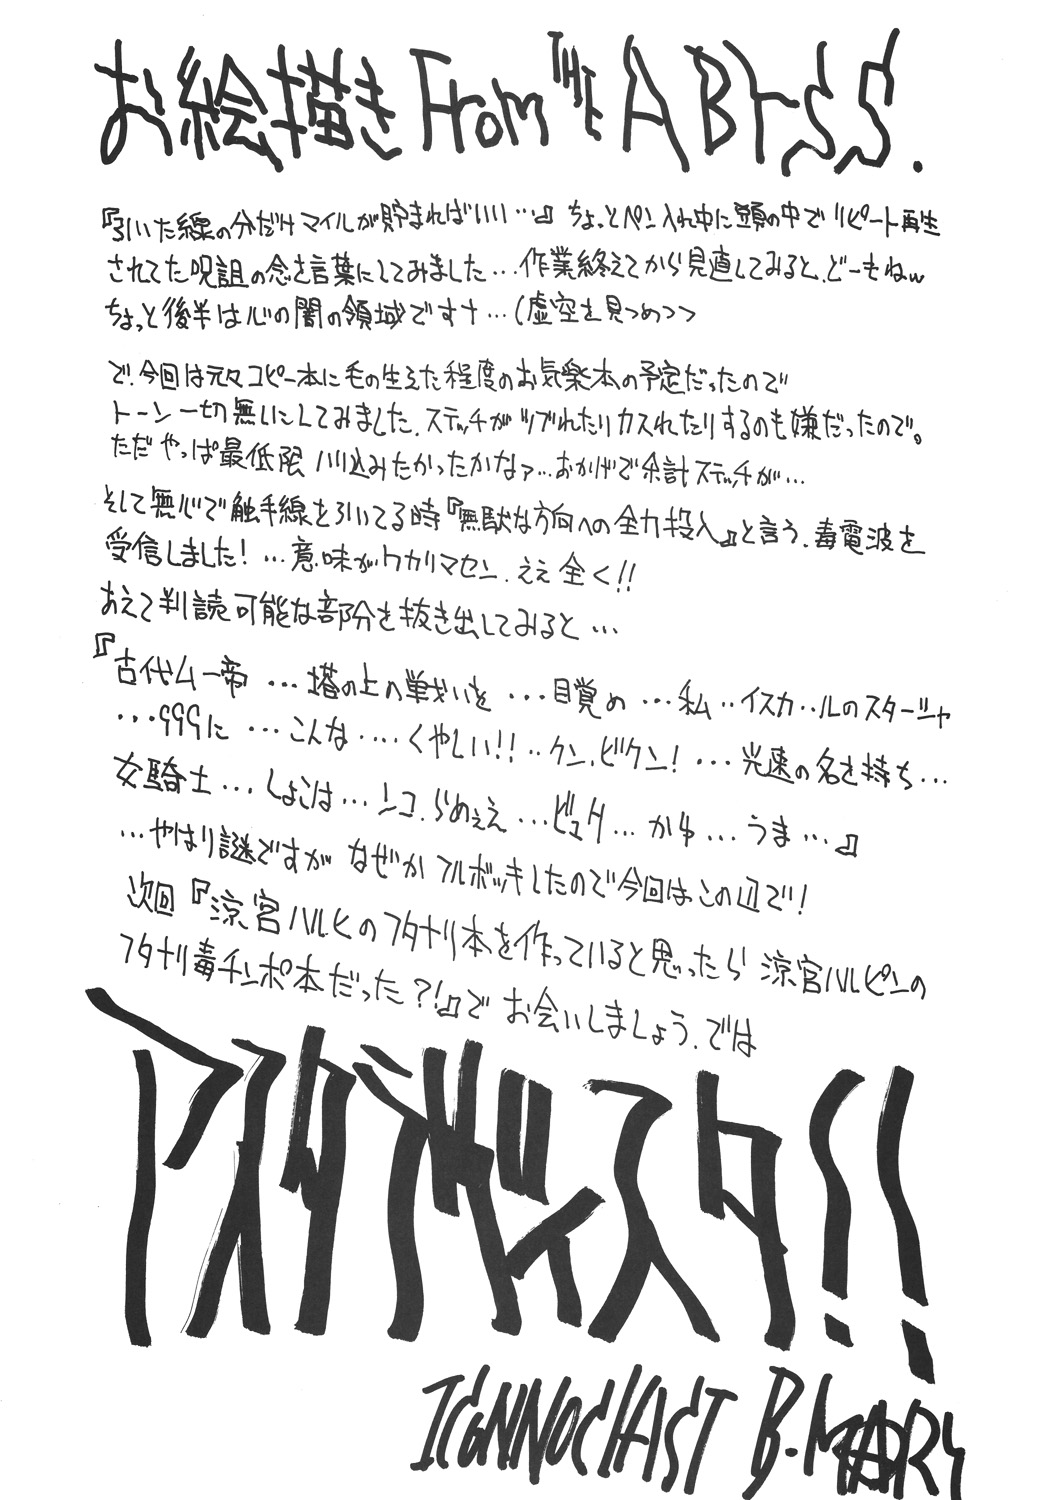 お絵描き From THE ABYSS.
『引いた線の分だけマイルが貯まればいい…』ちょっとペン入れ中に頭の中でリピート再生
されてた呪詛の念を言葉にしてみました…作業終えてから見直してみると、どーもねw
ちょっと後半は心の闇の領域です†…(虚空を見つめつつ
で、今回は元々コピー本に毛の生えた程度のお気楽本の予定だったので
トーン一切無しにしてみました、ステッチがツブれたりカスれたりするのも嫌だったので。
ただやっぱ最低限 バリ込みたかったかなァ…おかげで余計ステッチが…
そして無心で触手線を引いてる時『無駄な方向への全力投入』と言う、毒電波を
受信しました!…意味がワカリマセン、ええ全く!!
あえて判読可能な部分を抜き出してみると…
『古代ムー帝…塔の上の戦いを…目覚め…私‥イスカ‥ルのスターシャ
…999に…こんな‥‥くやしい!!‥クン、ビクン!…光速の名を持ち…
女騎士…しょこは…ンコ、らめぇえ…ビュク…かゆ…うま…』
…やはり謎ですが なぜかフルボッキしたので今回はこの辺で!
次回『涼宮ハルヒのフタナリ本を作っていると思ったら 涼宮ハルピンの
フタナリ毒チンポ本だった?!』で お会いしましょう、では
アスタラビスタ!!
ICONNOCLAST B.MARY